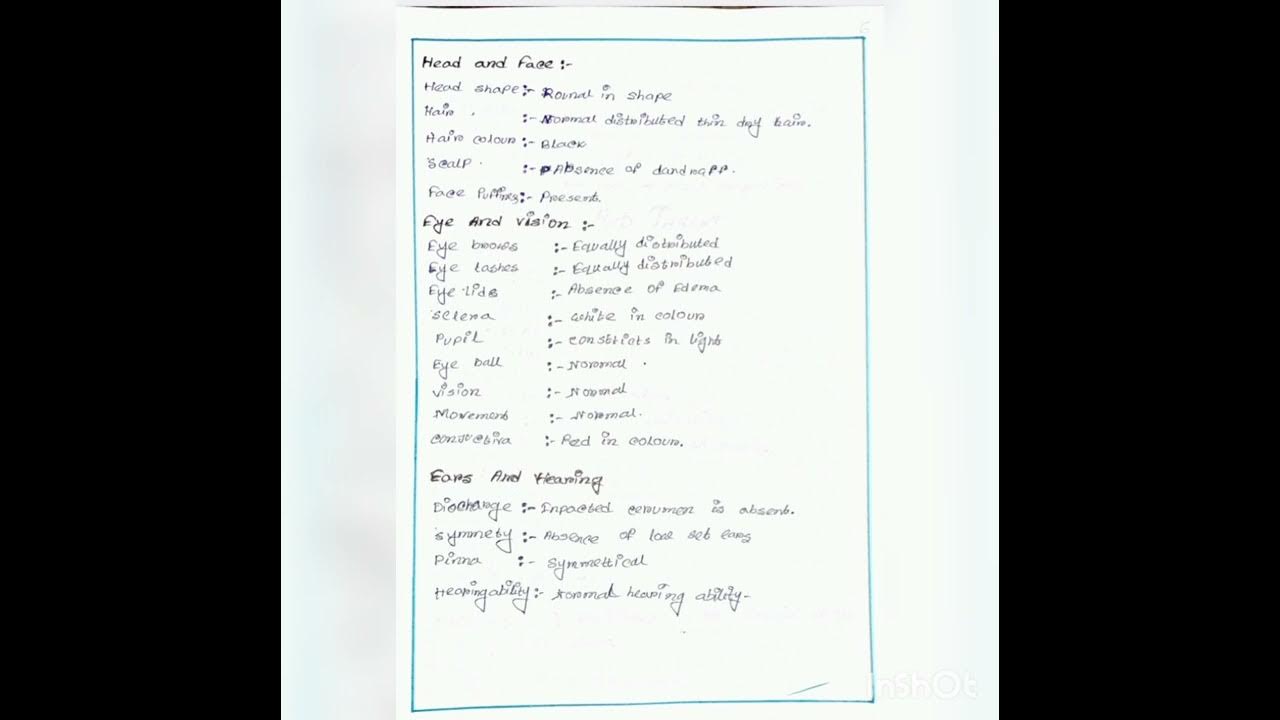 6
Head and Face :-
Head shape :- Round in shape
Hair :- Normal distributed thin dry hair.
Hair colour :- Black
Scalp :- Absence of dandruff.
Face Puffines :- Present.
Eye And Vision :-
Eye brows :- Equally distributed
Eye lashes :- Equally distributed
Eye lids :- Absence of Edema
Sclera :- White in colour
Pupil :- Constricts in light
Eye Ball :- Normal
Vision :- Normal
Movement :- Normal.
Conjuctiva :- Red in colour.
Ears And Hearing
Discharge :- Inpacted cerumen is absent.
Symmety :- Absence of low set ears
Pinna :- Symmettical
Hearing ability :- Normal hearing ability-
InShOt